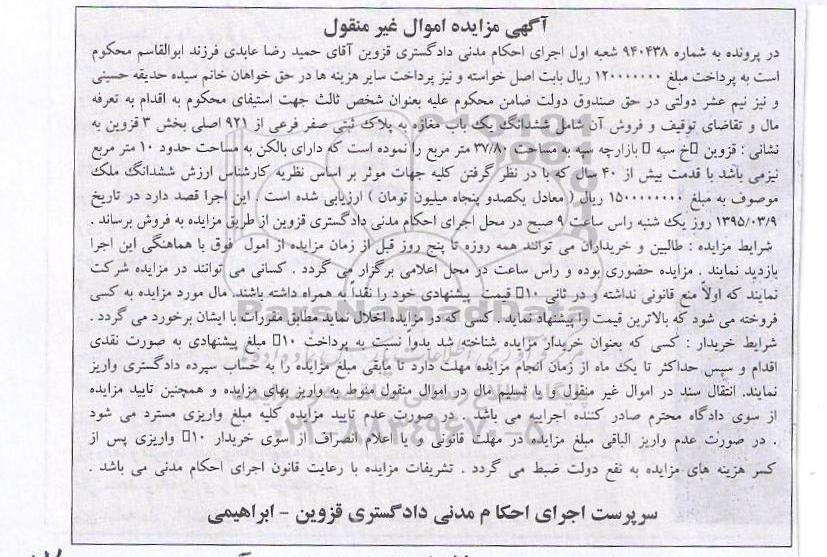 آگهی مزایده اموال غیر منقول
در پرونده به شماره ۹۴۰۴۳۸ شعبه اول اجرای احکام مدنی دادگستری قزوین آقای حمید رضا عابدی فرزند ابوالقاسم محکوم
است به پرداخت مبلغ ۱۲۰۰۰۰۰۰۰ ریال بابت اصل خواسته و نیز پرداخت سایر هزینه ها در حق خواهان خانم سیده حدیقه حسینی
و نیز نیم عشر دولتی در حق صندوق دولت ضامن محکوم علیه بعنوان شخص ثالث جهت استیفای محکوم به اقدام به تعرفه
مال و تقاضای توقیف و فروش آن شامل ششدانگ یک باب مغازه به پلاک ثبتی صفر فرعی از ۹۲۱ اصلی بخش ۳ قزوین به
نشانی : قزوین خ سپه بازارچه سپه به مساحت ۳۷/۸۰ متر مربع را نموده است که دارای بالکن به مساحت حدود ۱۰ متر مربع
نیزمی باشد با قدمت بیش از ۴۰ سال که با در نظر گرفتن کلیه جهات موثر بر اساس نظریه کارشناس ارزش ششدانگ ملک
موصوف به مبلغ ۱۵۰۰۰۰۰۰۰۰ ریال ( معادل یکصدو پنجاه میلیون تومان ) ارزیابی شده است . این اجرا قصد دارد در تاریخ
۱۳۹۵/۰۳/۹ روز یک شنبه راس ساعت ۹ صبح در محل اجرای احکام مدنی دادگستری قزوین از طریق مزایده به فروش برساند .
شرایط مزایده : طالبین و خریداران می توانند همه روزه تا پنج روز قبل از زمان مزایده از امول فوق با هماهنگی این اجرا
بازدید نمایند . مزایده حضوری بوده و راس ساعت در محل اعلامی برگزار می گردد . کسانی می توانند در مزایده شرکت
نمایند که اولاً منع قانونی نداشته و در ثانی ۱۰ قیمت پیشنهادی خود را نقداً به همراه داشته باشند. مال مورد مزایده به کسی
فروخته می شود که بالاترین قیمت را پیشنهاد نماید . کسی که در مزایده اخلال نماید مطابق مقررات با ایشان برخورد می گردد .
شرایط خریدار : کسی که بعنوان خریدار مزایده شناخته شد بدوا نسبت به پرداخت ۱۰ مبلغ پیشنهادی به صورت نقدی
اقدام و سپس حداکثر تا یک ماه از زمان انجام مزایده مهلت دارد تا مابقی مبلغ مزایده را به حساب سپرده دادگستری واریز
نمایند. انتقال سند در اموال غیر منقول و یا تسلیم مال در اموال منقول منوط به واریز بهای مزایده و همچنین تایید مزایده
از سوی دادگاه محترم صادر کننده اجراییه می باشد . در صورت عدم تایید مزایده کلیه مبلغ واریزی مسترد می شود
. در صورت عدم واریز الباقی مبلغ مزایده در مهلت قانونی و یا اعلام انصراف از سوی خریدار ۱۰ واریزی پس از
کسر هزینه های مزایده به نفع دولت ضبط می گردد . تشریفات مزایده با رعایت قانون اجرای احکام مدنی می باشد .
سرپرست اجرای احکام مدنی دادگستری قزوین - ابراهیمی